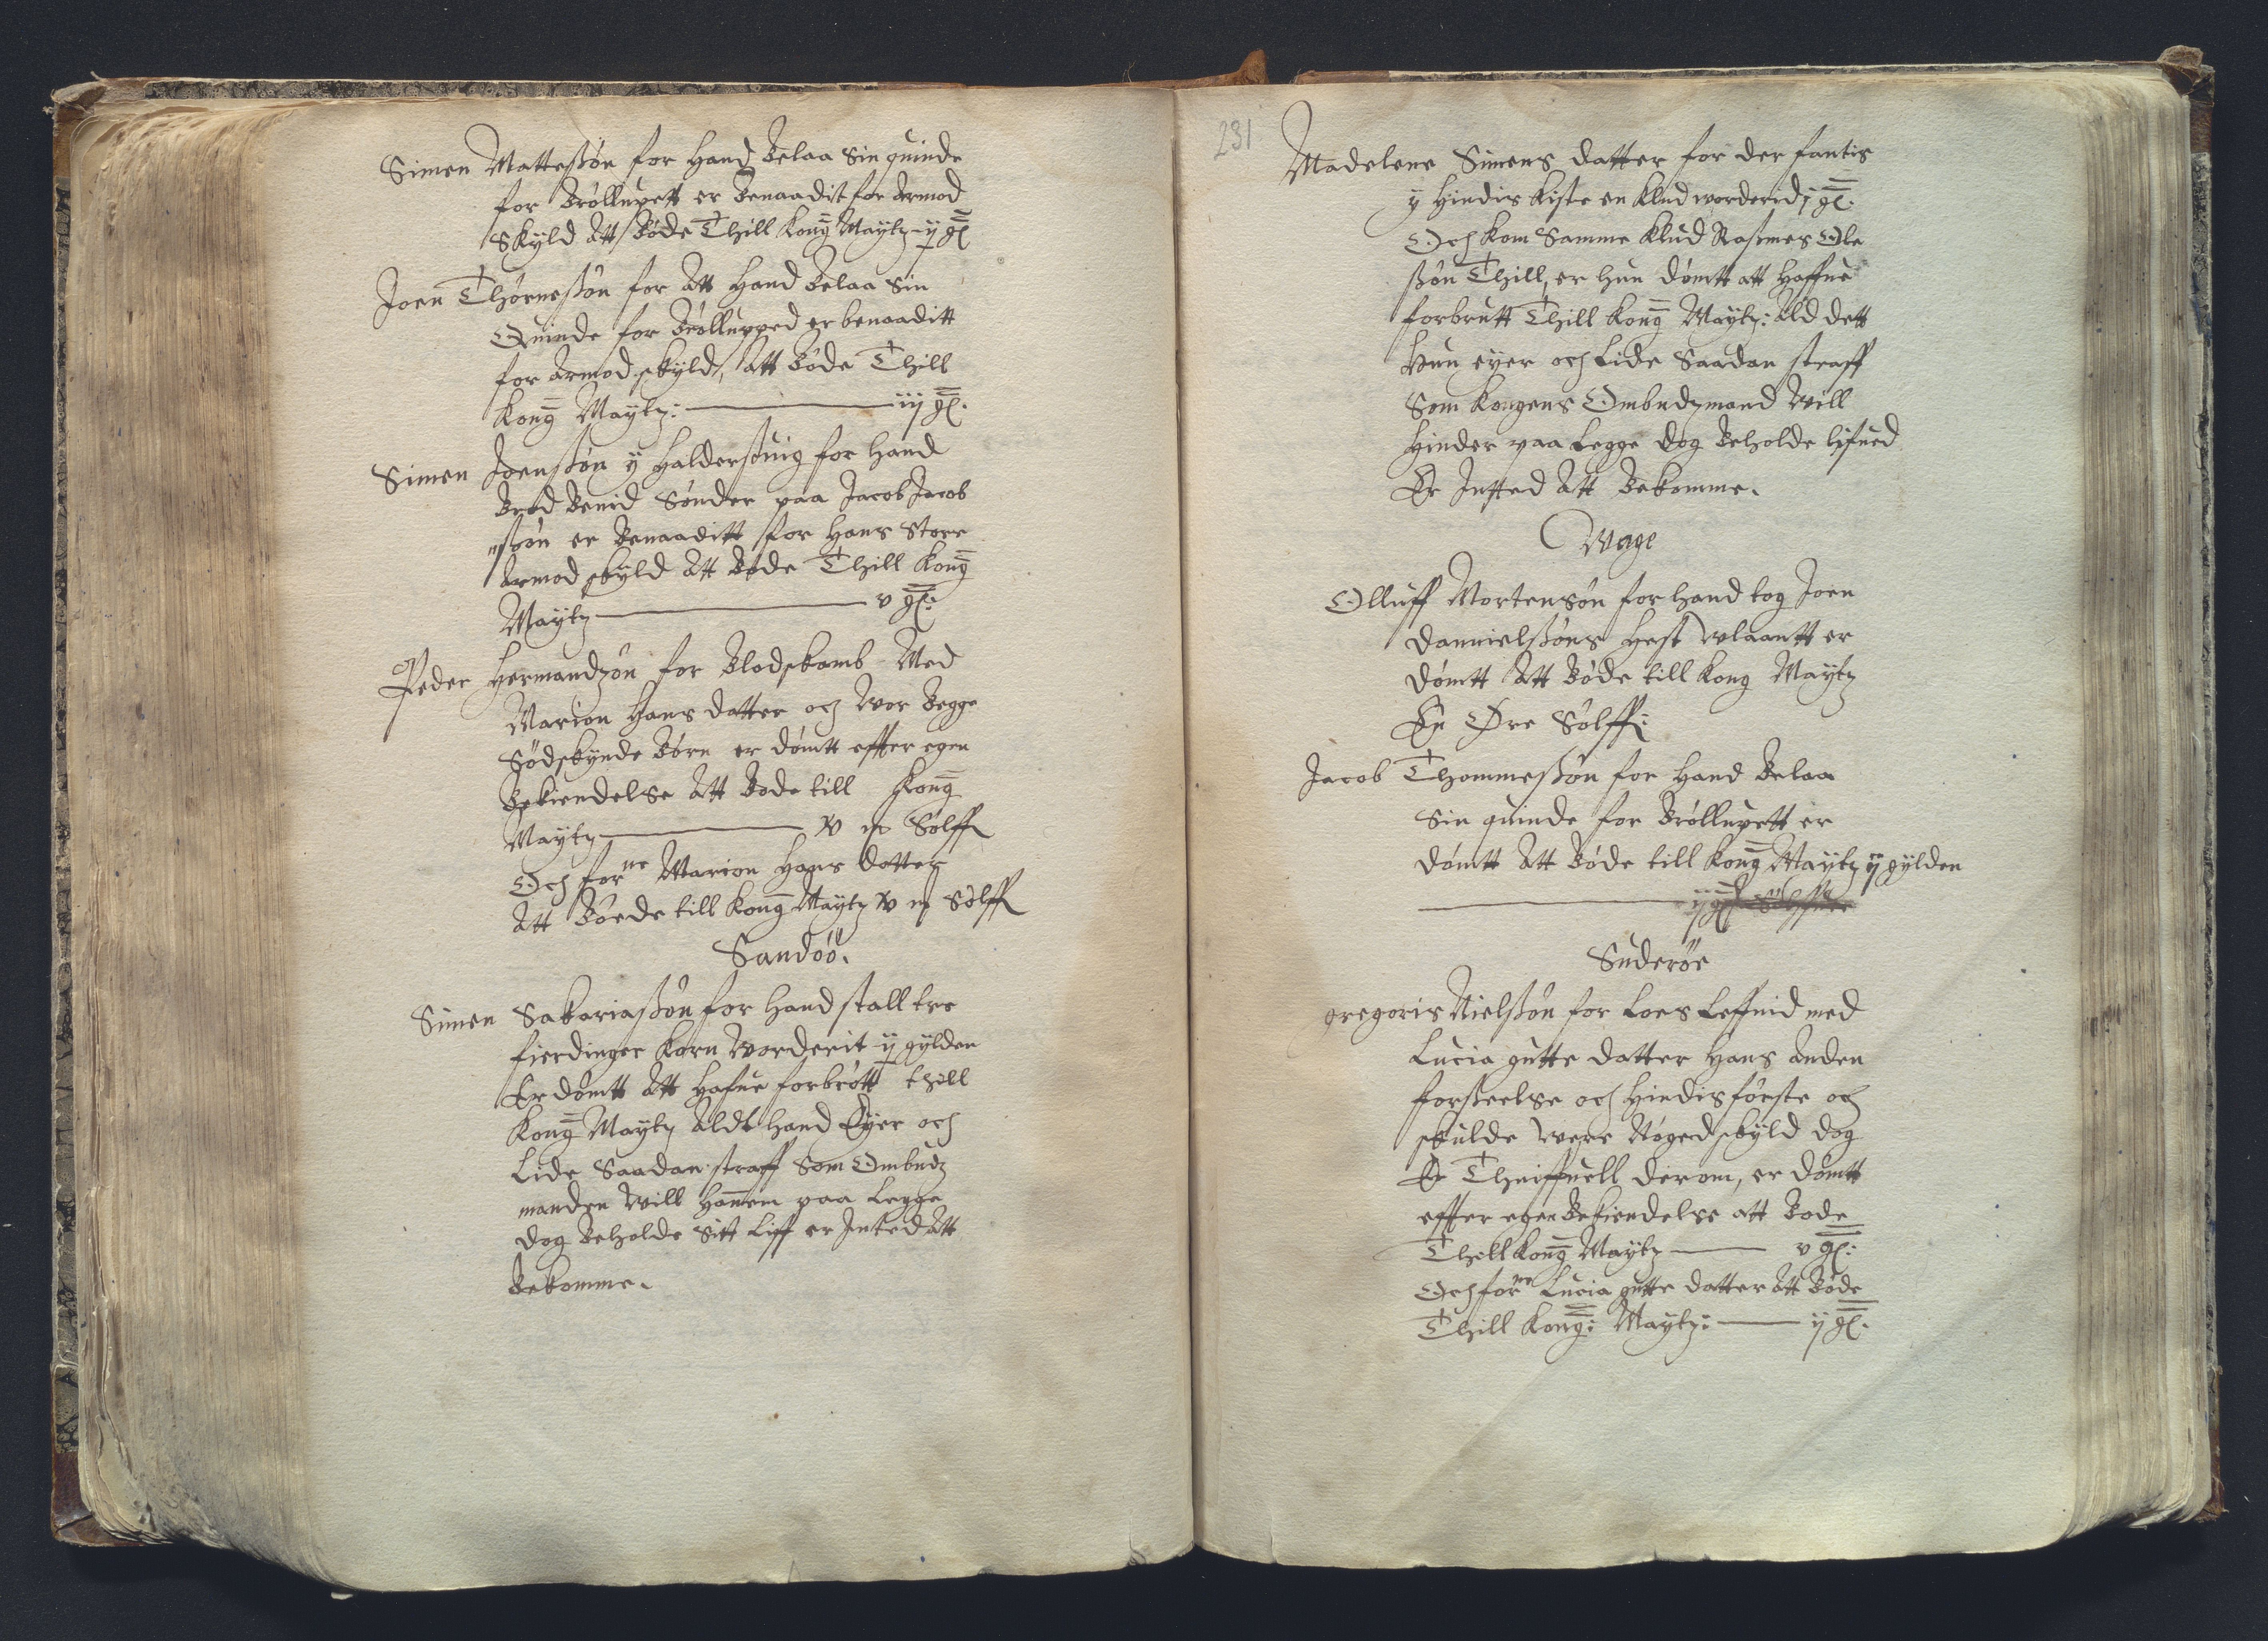 Simen Matteßøn for Hand Belaa Sin quinde
for Brøllupett er Benaadit for Armod
Skyld Att Bøde Thill Kong Maytz ij gl
Joen Thørneßøn for Att Hand Belaa Sin
Quinde for Brøllupped er benaaditt
for Armod skyld, Att Bøde Thill
Kong Maytz: iij gl.
Simen Joenßøn y Halderßuig for Hand
Brød Benid Sønder paa Jacob Jacob
ßøn er Benaaditt for Hans Store
Armod skyld Att Bøde Thill Kong
Maytz v gl:
Peder Hermandzøn for Blodskamb Med
Marion Hans datter och Wor Begge
Sødskynde Børn er dømtt effter egen
Bekiendelse Att Bøde till Kong
Maytz xv m Sølff
Och forne Marion Hans datter
Att Bøede till Kong Maytz xv m Sølff
Sandøö.
Simen Sakariaßøn for Hand stall tre
fierdinger Korn Worderit ij gylden
Er dømtt Att Hafue forbrøtt thill
Kong Maytz Aldt Hand Eyer och
Lide Saadan straff Som Ombudz
manden Will Hannem paa Legge
dog Beholde Sitt Liff er Inted Att
Bekomme.
231
Madelene Simens datter for der fantis
y Hindis Kiste en Klud worderid j gl.
Och Kom Samme Klud Rasmes Ole
ßøn Thill, er Hun dømtt att Haffue
forbrutt Thill Kong Maytz: Ald dett
Hun eyer och Lide Saadan straff
Som Kongens Ombudzmand Will
Hinder paa Legge dog Beholde lifued
Er Intted Att Bekomme.
Wage
Olluff Mortensøn for Hand tog Joen
Dannielßøns Hest Wlaantt er
dømtt Att Bøde till Kong Maytz
En Øre Sølff:
Jacob Thommeßøn for Hand Belaa
Sin quinde for Brøllupett er
dømtt Att Bøde till Kong Maytz ij gylden
ij gl
Suderøe
gregoris Nielßøn for Loes Leffnid med
Lucia gutte datter Hans Anden
forseelse och Hindis første och
skulde Were Noged skyld dog
Er Thuiffuell derom, er dømtt
effter egen Bekiendelse att Bøde
Thill Kong Maytz v gl:
Och forne Lucia gutte datter Att Bøde
Thill Kong: Maytz: ij gl.